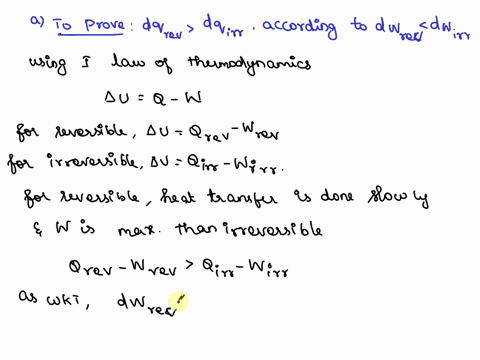 a) To prove: dq_rev > dq_irr. according to dW_rev < dW_irr
using I law of thermodynamics
ΔU = Q - W
for reversible, ΔU = Q_rev - W_rev
for irreversible, ΔU = Q_irr - W_irr.
for reversible, heat transfer is done slowly
& W is max. than irreversible
Q_rev - W_rev > Q_irr - W_irr
as WKT, dW_rev